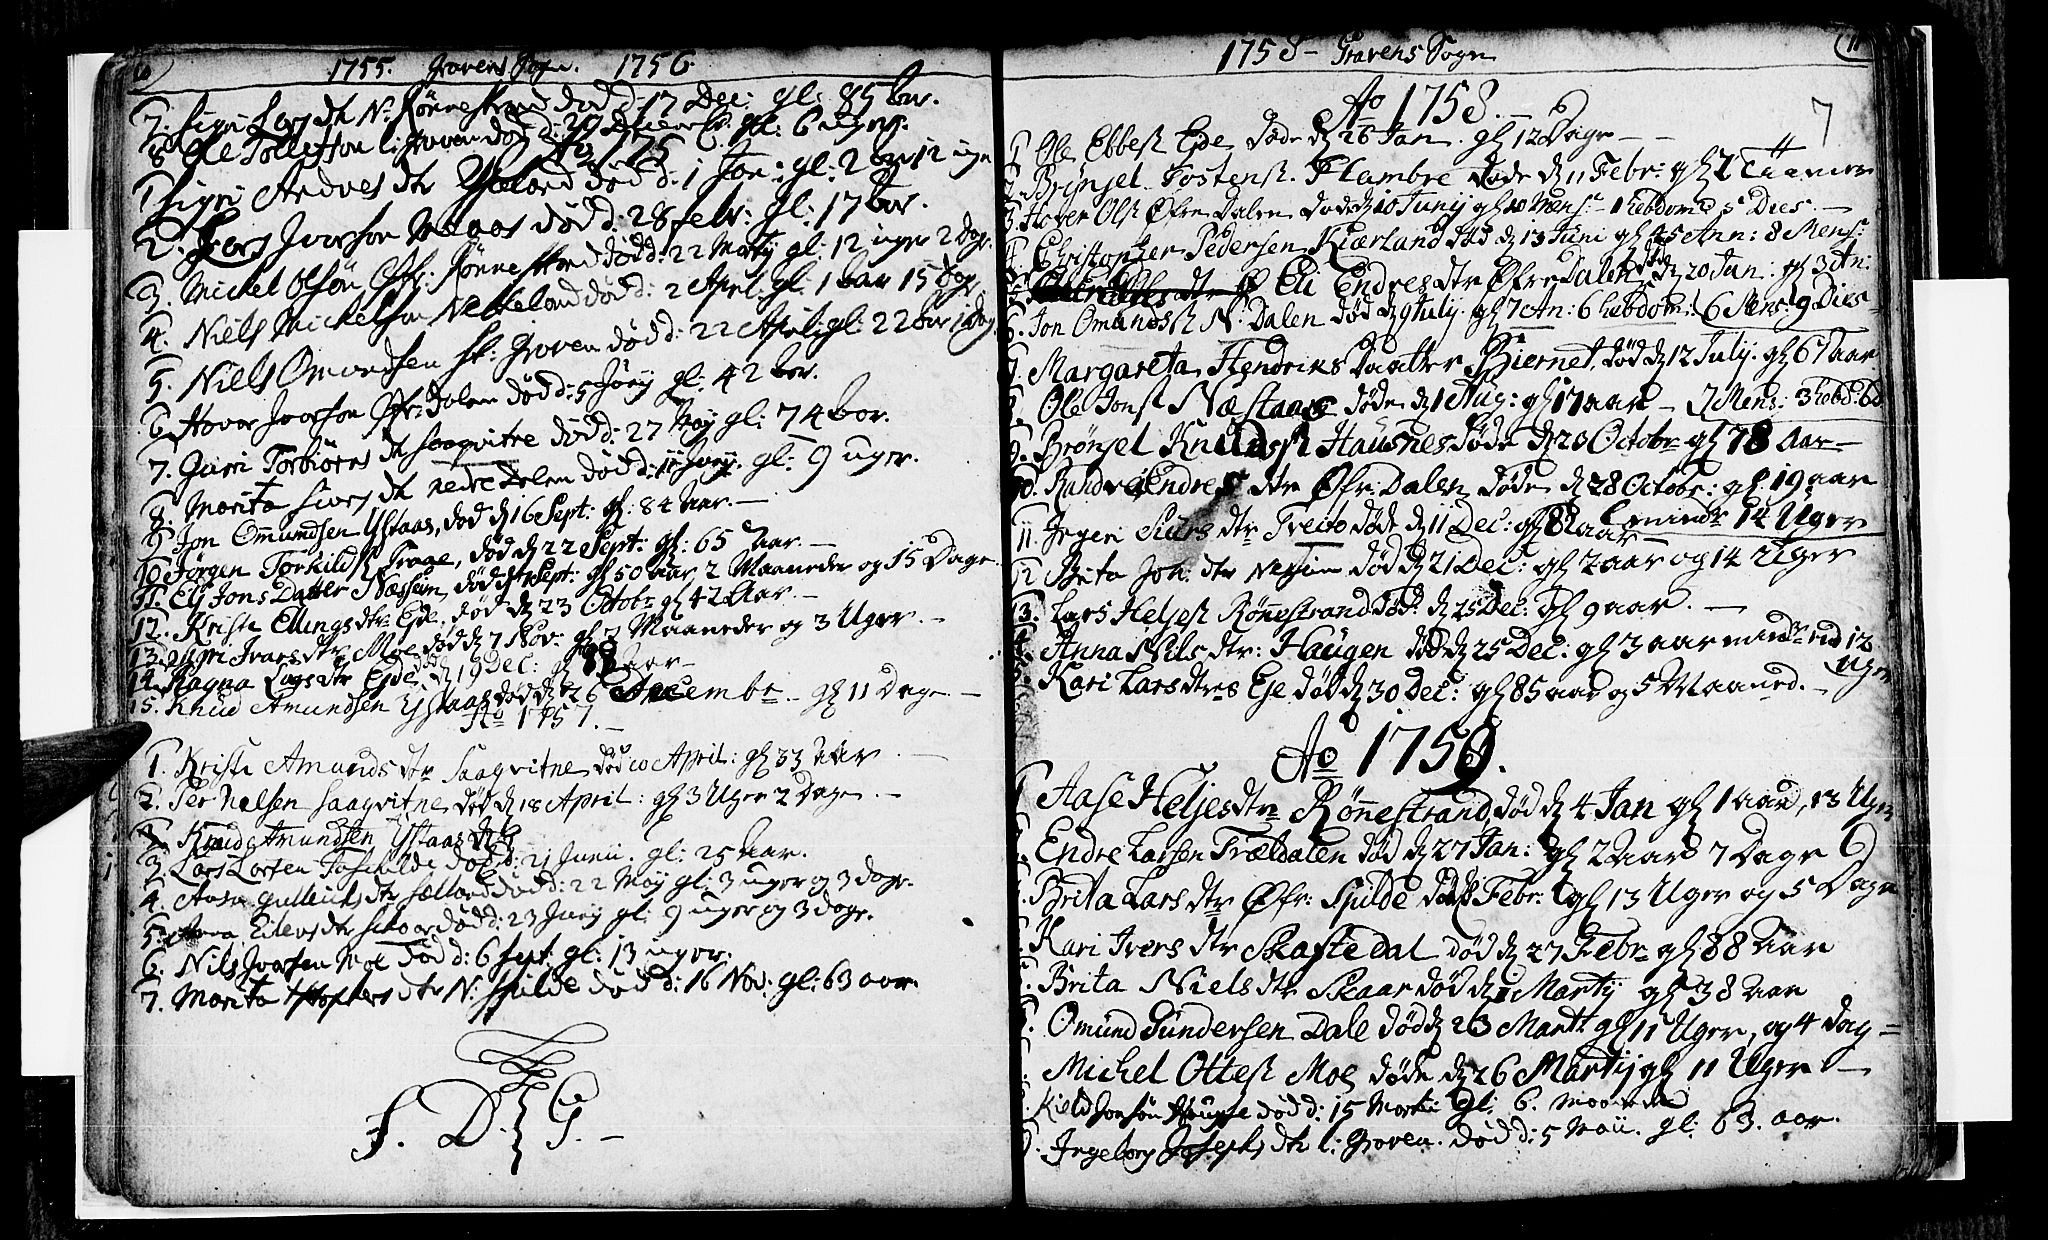 10
1755. Gravens Sogn. 1756.
7. Sigri Lars dtr N. Rönnestrand död d: 17 Dec: gl: 85 aar.
8 Ole Tollefson l: Graven död d: 29 gl: 6 uger.
Ao 1756.
1 Sigri Andves dtr død d: 1 Jan: gl: 2 aar 12 uger
2. Lars Ivarson død d: 28 febr: gl: 17 aar.
3. Michel Olsön Øfr: Rönnestrand død d: 22 Martij gl: 12 uger 2 Dage.
4. Niels Michelson Nesseland død d: 2 April: gl: 1 aar 15 dage.
5. Niels Omundsen st: Graven død d: 22 April: gl: 22 aar 1 dag
6. Haver Ivarson Øfr: Dalen død d: 5 Junij gl: 42 aar.
7. Guri Torbiörns dtr Saaqvitne død d: 27 Maj gl: 74 aar.
8. Marita Sivers dtr nedre Dalen død d: 11 Junij. gl: 9 uger.
9 Jon Ommundsen Ystaas, død d 16 Sept: gl: 84 Aar. —
10 Jörgen Torkilds Trage, død d 22 Sept: gl: 65 Aar. —
11. Eli Jons Datter Næsseim, død d Sept: gl 50 aar 2 Maaneder og 15 Dage
12. Kristi Ellings dtr Eide, død d 23 Octobr gl 42 Aar. —
13. Guri Ivars dtr Moe død d 7 Nov: gl 2 Maaneder og 3 Uger. —
14. Ragna Lars dtr Ejde, død d 19 Dec: gl Aar —
15. Knud Amundsen Ystaas død d 26 Decembr gl 11 Dage —
Ao 1757.
1. Kristi Amunds dtr Saaqvitne død 10 April: gl 33 Aar —
2. Per Nelsen Saaqvitne død d 18 April: gl 3 Uger 2 Dage. —
Knud Amundsen Ystaas
3. Lars Larsen død d: 21 Junii. gl: 25 Aar.
4. Anna Gulleiks dtr Sælland død d: 22 Maij gl: 3 uger og 3 dage.
5. Anna Eilevs dtr Skaar død d: 23 Junij gl: 9 uger og 3 dage.
6. Nils Ivarsen Moe død d: 6 Sept. gl: 13 uger.
7. Marita dtr N: Spilde død d: 16 Nov: gl: 63 aar.
S. D. G. —
1758 — Gravens Sogn
11
7
Ao 1758.
1 Ole Ebbes Ejde døde d 26 Jan gl 12 Dage —
2 Brynjel Tostens. Flambre døde d 11 Febr: gl
3 Haver Ols Øfre Dalen døde d 10 Junij gl 10 Mens: 1 hebdom 5 Dies. —
4 Christopher Pedersen Kiærland død d 13 Juni gl 45 Ann: 8 Mens:
Eli Endres dtr Øfre Dalen død d 20 Jan: gl 3 An:
6. Jon Omunds N: Dalen død d 9 July. gl 7 An: 6 hebdom: 6 Mens: 9 Dies
7. Margareta Hendriks Daatter Bjernet, død d 12 July. gl 67 aar
8. Ole Jons Næstaas døde d 1 Aug: gl 17 aar — 7 Mens: 3 hebd: 6 d
9. Brönjel Knuds Hausnes døde d 20 Octobr gl 78 Aar —
10. Randvei Endres dtr Øfr: Dalen døde d 28 Octobr: gl 19 aar
11. Jngeri Siurs dtr Treito døde d 11 Dec: gl 82 aar mindr 14 Uger
12 Brita Jon. dtr Nessim død d 21 Dec: gl 2 aar og 14 Uger
13. Lars Heljes Rönnestrand død: d 25 Dec: gl 9 aar. —
Anna Nils dtr: Haugen død d 25 Dec: gl 3 aar mindre end 12
Uger
Kari Lars dtr Eje død d 30 Dec: gl 85 aar og 5 Maaned. —
Ao 1759.
Aase Heljes dtr Rönnestrand, død d 4 Jan gl 1 aar, 13 Uger
Endre Larsen Trældalen død d 27 Jan: gl 2 Aar 7 Dage
Brita Lars dtr Øfr: Spilde død Febr: gl 13 Uger og 5 Dage
Kari Ivers dtr Skastedal død d 27 Febr gl 88 Aar
Brita Niels dtr Skaar død d 1 Martij gl 38 Aar
Omund Gundersen Dale død d 23 Marti gl 11 Uger, og 4 dag=
Michel Ottes Moe døde d 26 Martij gl 11 Uger —
Kield Jonsön Hauge død d: 15 Martii gl: 6. maaneder
Jngeborg Josephs dtr l: Graven. død d: 5 Maii. gl: 63. aar.